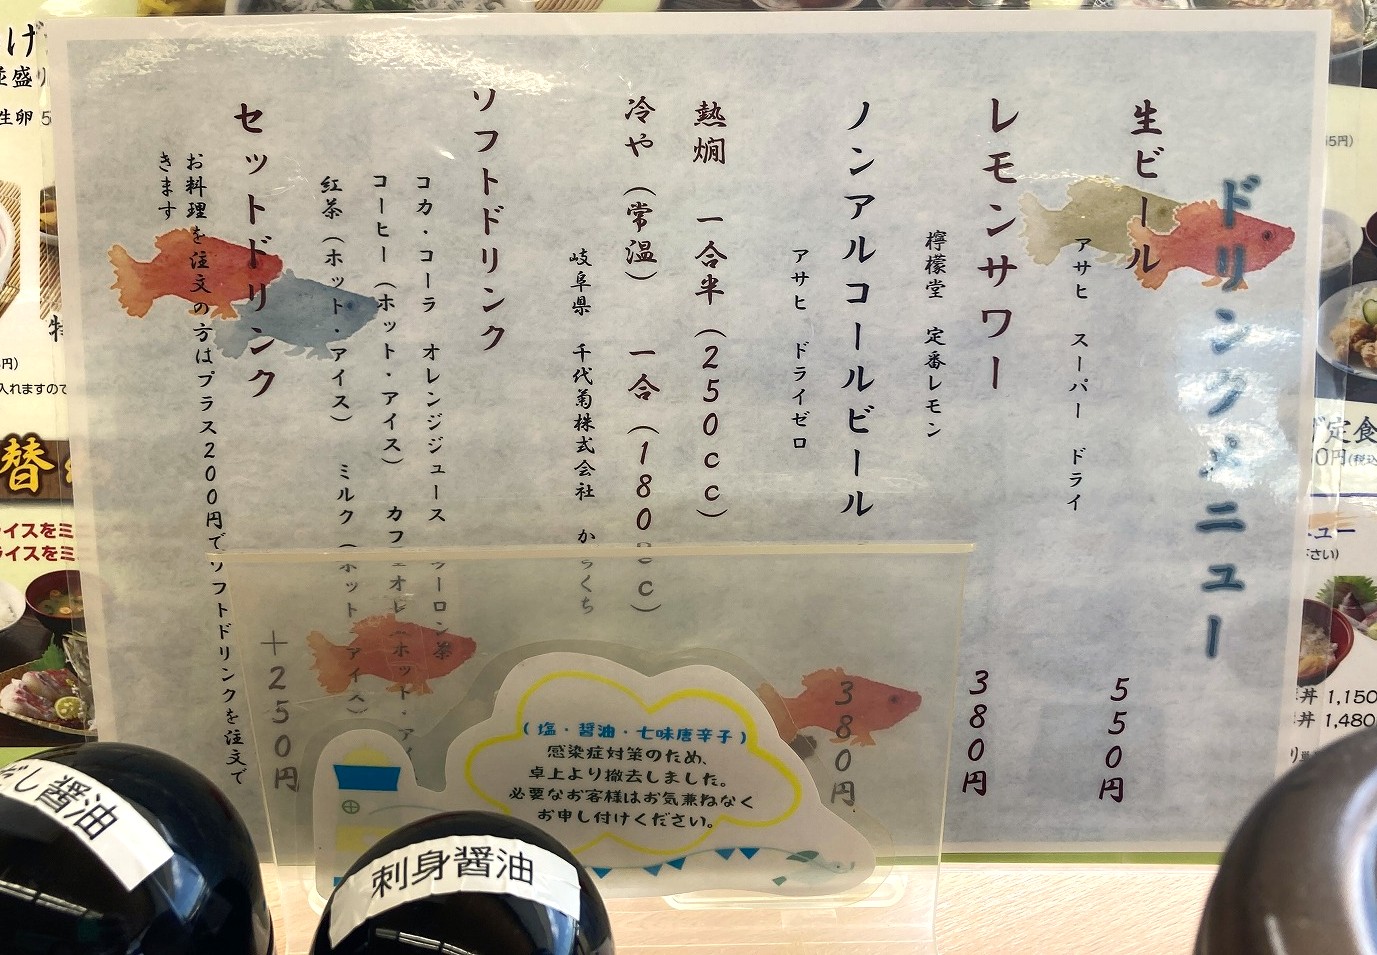 ドリンクメニュー
生ビール 550円
アサヒ スーパー ドライ
レモンサワー 380円
檸檬堂 定番レモン
ノンアルコールビール 380円
アサヒ ドライゼロ
熱燗 一合半（250cc）
冷や（常温） 一合（180cc）
岐阜県 千代菊株式会社 からくち
ソフトドリンク
コカ・コーラ オレンジジュース ウーロン茶
コーヒー（ホット・アイス） カフェオレ（ホット・アイ
紅茶（ホット・アイス） ミルク（ホット アイス）
セットドリンク +250円
お料理を注文の方はプラス200円でソフトドリンクを注文で
きます
（塩・醤油・七味唐辛子）
感染症対策のため、
卓上より撤去しました。
必要なお客様はお気兼ねなく
お申し付けください。
だし醤油
刺身醤油
げ
並盛り
生卵 5
円）
入れますので
替
イスをミ
ライスをミ
定食
0円(税込
ュー
下さい）
丼 1,150
丼 1,480